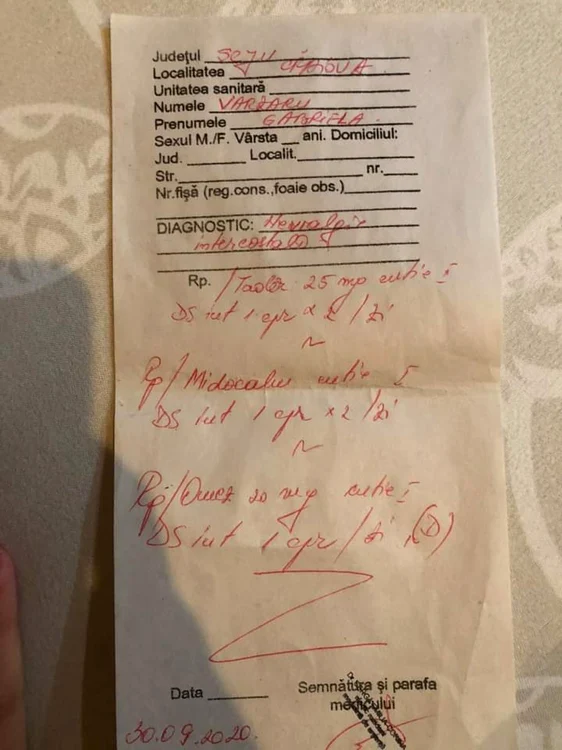 Județul
Localitatea CRAIOVA
Unitatea sanitară
Numele VARZARU
Prenumele GABRIELA
Sexul M./F. Vârsta ani. Domiciliul:
Jud. Localit.
Str. nr.
Nr.fișă (reg.cons.,foaie obs.)
DIAGNOSTIC: Nevralgie
intercostală
Rp. / 25 mg cutie I
DS int 1 cpr x 2 / zi
Rp/ Midocalm cutie I
DS int 1 cpr x 2 / zi
Rp/ Omez 20 mg cutie I
DS int 1 cpr / zi (D)
Data Semnătura și parafa
medicului
30.09.2020.